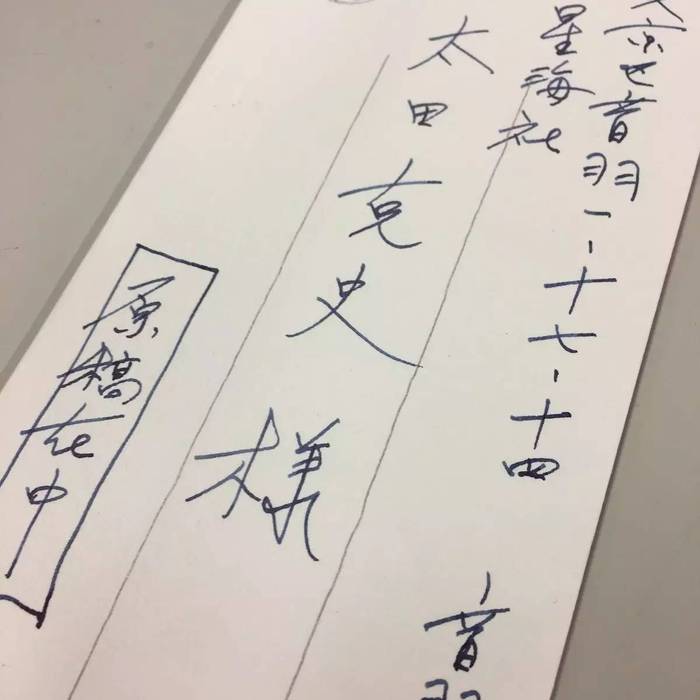 文京区音羽一-十七-十四 音羽
星海社
太田克史様
原稿在中